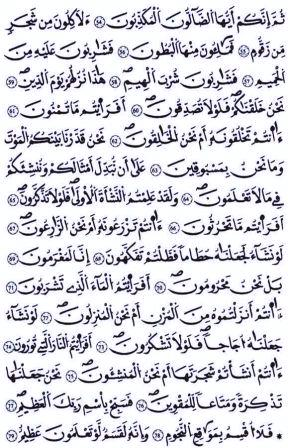 ثُمَّ إِنَّكُمْ أَيُّهَا الضَّآلُّونَ الْمُكَذِّبُونَ ٥٤ ءَلَأكِلُونَ مِن شَجَرٍ
مِّن زَقُّومٍ ٥٥ فَمَالِـُٔونَ مِنْهَا الْبُطُونَ ٥٦ فَشَارِبُونَ عَلَيْهِ مِنَ
الْحَمِيمِ ٥٧ فَشَارِبُونَ شُرْبَ الْهِيمِ ٥٨ هَٰذَا نُزُلُهُمْ يَوْمَ الدِّينِ ٥٩
نَحْنُ خَلَقْنَاكُمْ فَلَوْلَا تُصَدِّقُونَ ٦٠ أَفَرَأَيْتُم مَّا تُمْنُونَ ٦١
ءَأَنتُمْ تَخْلُقُونَهُ أَمْ نَحْنُ الْخَالِقُونَ ٦٢ نَحْنُ قَدَّرْنَا بَيْنَكُمُ الْمَوْتَ
وَمَا نَحْنُ بِمَسْبُوقِينَ ٦٣ عَلَىٰ أَن نُّبَدِّلَ أَمْثَالَكُمْ وَنُنشِئَكُمْ
فِي مَا لَا تَعْلَمُونَ ٦٤ وَلَقَدْ عَلِمْتُمُ النَّشْأَةَ الْأُولَىٰ فَلَوْلَا تَذَّكَّرُونَ ٦٥
أَفَرَأَيْتُم مَّا تَحْرُثُونَ ٦٦ ءَأَنتُمْ تَزْرَعُونَهُ أَمْ نَحْنُ الزَّارِعُونَ ٦٧
لَوْ نَشَآءُ لَجَعَلْنَاهُ حُطَامًا فَظَلْتُمْ تَفَكَّهُونَ ٦٨ إِنَّا لَمُغْرَمُونَ ٦٩
بَلْ نَحْنُ مَحْرُومُونَ ٧٠ أَفَرَأَيْتُمُ الْمَآءَ الَّذِي تَشْرَبُونَ ٧١
ءَأَنتُمْ أَنزَلْتُمُوهُ مِنَ الْمُزْنِ أَمْ نَحْنُ الْمُنزِلُونَ ٧٢ لَوْ نَشَآءُ
جَعَلْنَاهُ أُجَاجًا فَلَوْلَا تَشْكُرُونَ ٧٣ أَفَرَأَيْتُمُ النَّارَ الَّتِي تُورُونَ ٧٤
ءَأَنتُمْ أَنشَأْتُمْ شَجَرَتَهَآ أَمْ نَحْنُ الْمُنشِـُٔونَ ٧٥ نَحْنُ جَعَلْنَاهَا
تَذْكِرَةً وَمَتَاعًا لِّلْمُقْوِينَ ٧٦ فَسَبِّحْ بِاسْمِ رَبِّكَ الْعَظِيمِ ٧٧
فَلَآ أُقْسِمُ بِمَوَاقِعِ النُّجُومِ ٧٨ وَإِنَّهُ لَقَسَمٌ لَّوْ تَعْلَمُونَ عَظِيمٌ ٧٩